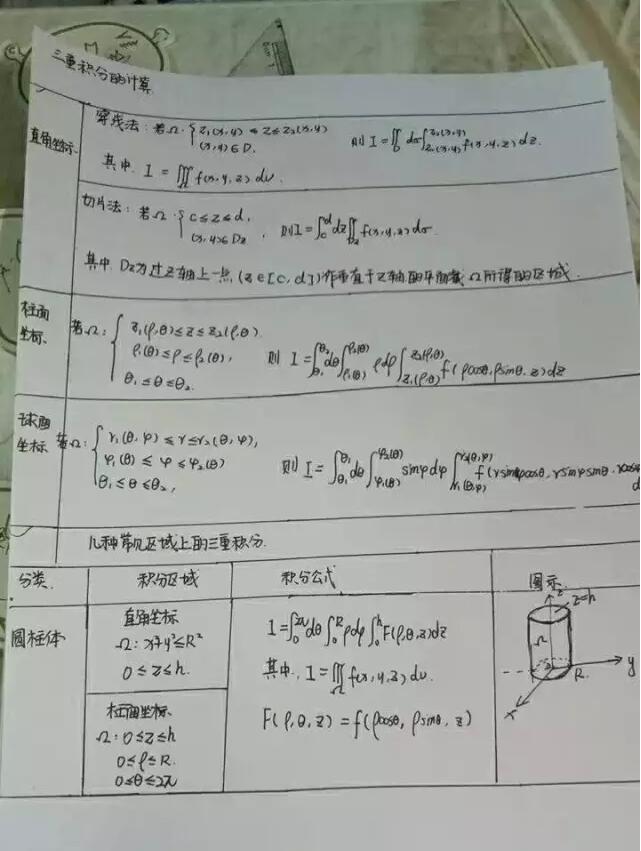 三重积分的计算
直角坐标 穿线法：若Ω：{z₁(x,y) ≤ z ≤ z₂(x,y)
(x,y)∈D. 则 I = ∬_D dσ∫_{z₁(x,y)}^{z₂(x,y)} f(x,y,z)dz.
其中. I = ∭ f(x,y,z) dv.
切片法：若Ω：{c ≤ z ≤ d,
(x,y)∈Dz , 则 I = ∫_c^d dz∬_{Dz} f(x,y,z)dσ.
其中 Dz为过z轴上一点,(z∈[c,d])作垂直于z轴的平面截Ω所得的区域.
柱面坐标. 若Ω：{z₁(ρ,θ) ≤ z ≤ z₂(ρ,θ).
ρ₁(θ) ≤ ρ ≤ ρ₂(θ), 则 I = ∫_{θ₁}^{θ₂} dθ∫_{ρ₁(θ)}^{ρ₂(θ)} ρdρ∫_{z₁(ρ,θ)}^{z₂(ρ,θ)} f(ρcosθ,ρsinθ,z)dz
θ₁ ≤ θ ≤ θ₂.
球面坐标 若Ω：{r₁(θ,φ) ≤ r ≤ r₂(θ,φ),
φ₁(θ) ≤ φ ≤ φ₂(θ) 则 I = ∫_{θ₁}^{θ₂} dθ∫_{φ₁(θ)}^{φ₂(θ)} sinφdφ∫_{r₁(θ,φ)}^{r₂(θ,φ)} f(rsinφcosθ, rsinφsinθ, rcosφ
θ₁ ≤ θ ≤ θ₂,
几种常见区域上的三重积分.
分类. 积分区域 积分公式 图示.
圆柱体
直角坐标
Ω：x²+y² ≤ R²
0 ≤ z ≤ h.
柱面坐标.
Ω：0 ≤ z ≤ h
0 ≤ ρ ≤ R.
0 ≤ θ ≤ 2π
I = ∫_0^{2π} dθ∫_0^R ρdρ∫_0^h F(ρ,θ,z)dz
其中. I = ∭_Ω f(x,y,z) dv.
F(ρ,θ,z) = f(ρcosθ, ρsinθ, z)
z
z=h
Ω
R.
y
x